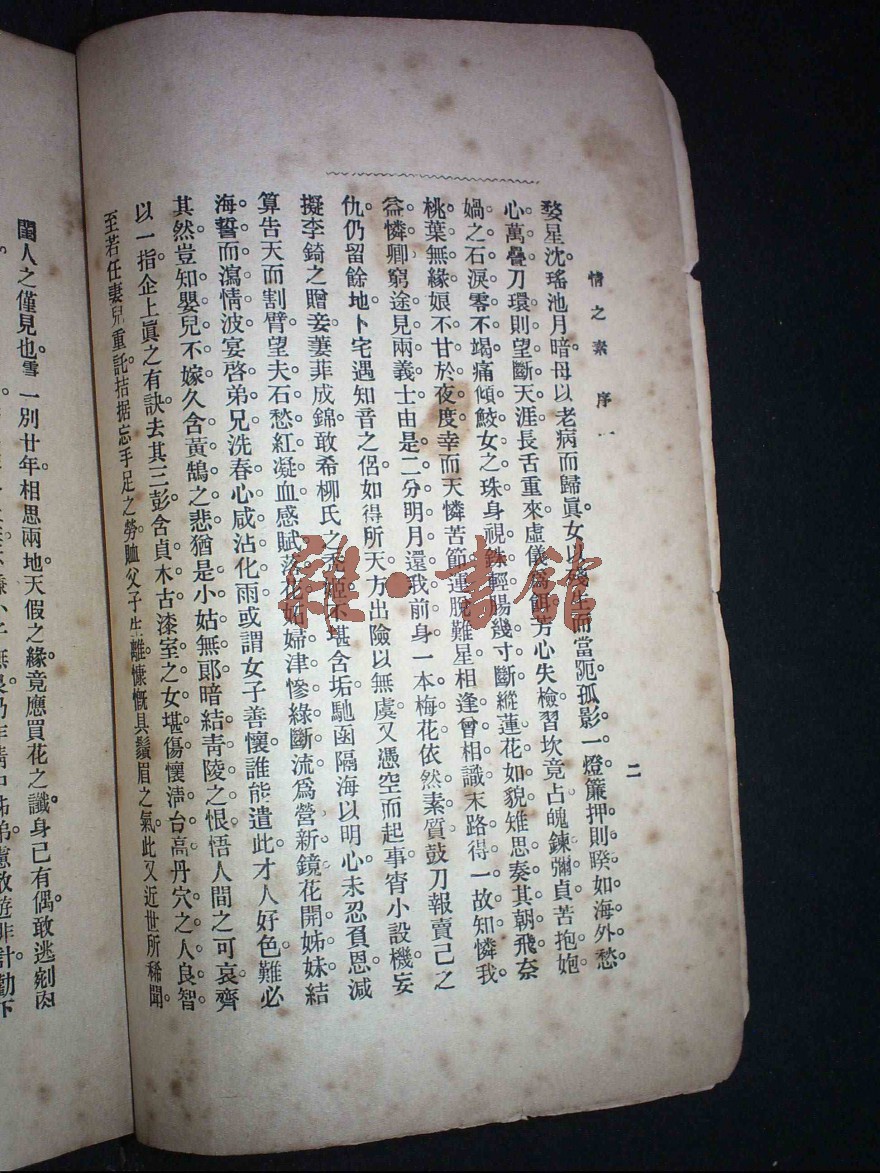 情之素　序一
二
婺星沈瑤池月暗母以老病而歸眞女以殘生而當阨孤影一燈簾押則睽如海外愁
心萬疊刀環則望斷天涯長舌重來虛儀爲餌芳心失檢習坎竟占魄鍊彌貞苦抱媧
媧之石淚零不竭痛傾鮫女之珠身視銖輕腸幾寸斷縱蓮花如貌雉思奏其朝飛奈
桃葉無緣娘不甘於夜度幸而天憐苦節運脫難星相逢曾相識末路得一故知憐我
益憐卿窮途見兩義士由是二分明月還我前身一本梅花依然素質鼓刀報賣己之
仇仍留餘地卜宅遇知音之侶如得所天方出險以無虞又憑空而起事宵小設機妄
擬李錡之贈妾萋菲成錦敢希柳氏之 姬不堪含垢馳函隔海以明心未忍負恩減
算告天而割臂望夫石愁紅凝血感賦落花妬婦津慘綠斷流爲營新鏡花開姊妹結
海誓而瀉情波宴啓弟兄洗春心咸沾化雨或謂女子善懷誰能遣此才人好色難必
其然豈知嬰兒不嫁久含黃鵠之悲猶是小姑無郞暗結靑陵之恨悟人間之可哀齊
以一指企上眞之有訣去其三彭含貞木古漆室之女堪傷懷淸台高丹穴之人良智
至若任妻兒重託拮据忘手足之勞賉父子生離慷慨具鬚眉之氣此又近世所稀聞
閨人之僅見也雪一別廿年相思兩地天假之緣竟應買花之讖身已有偶敢逃剜肉